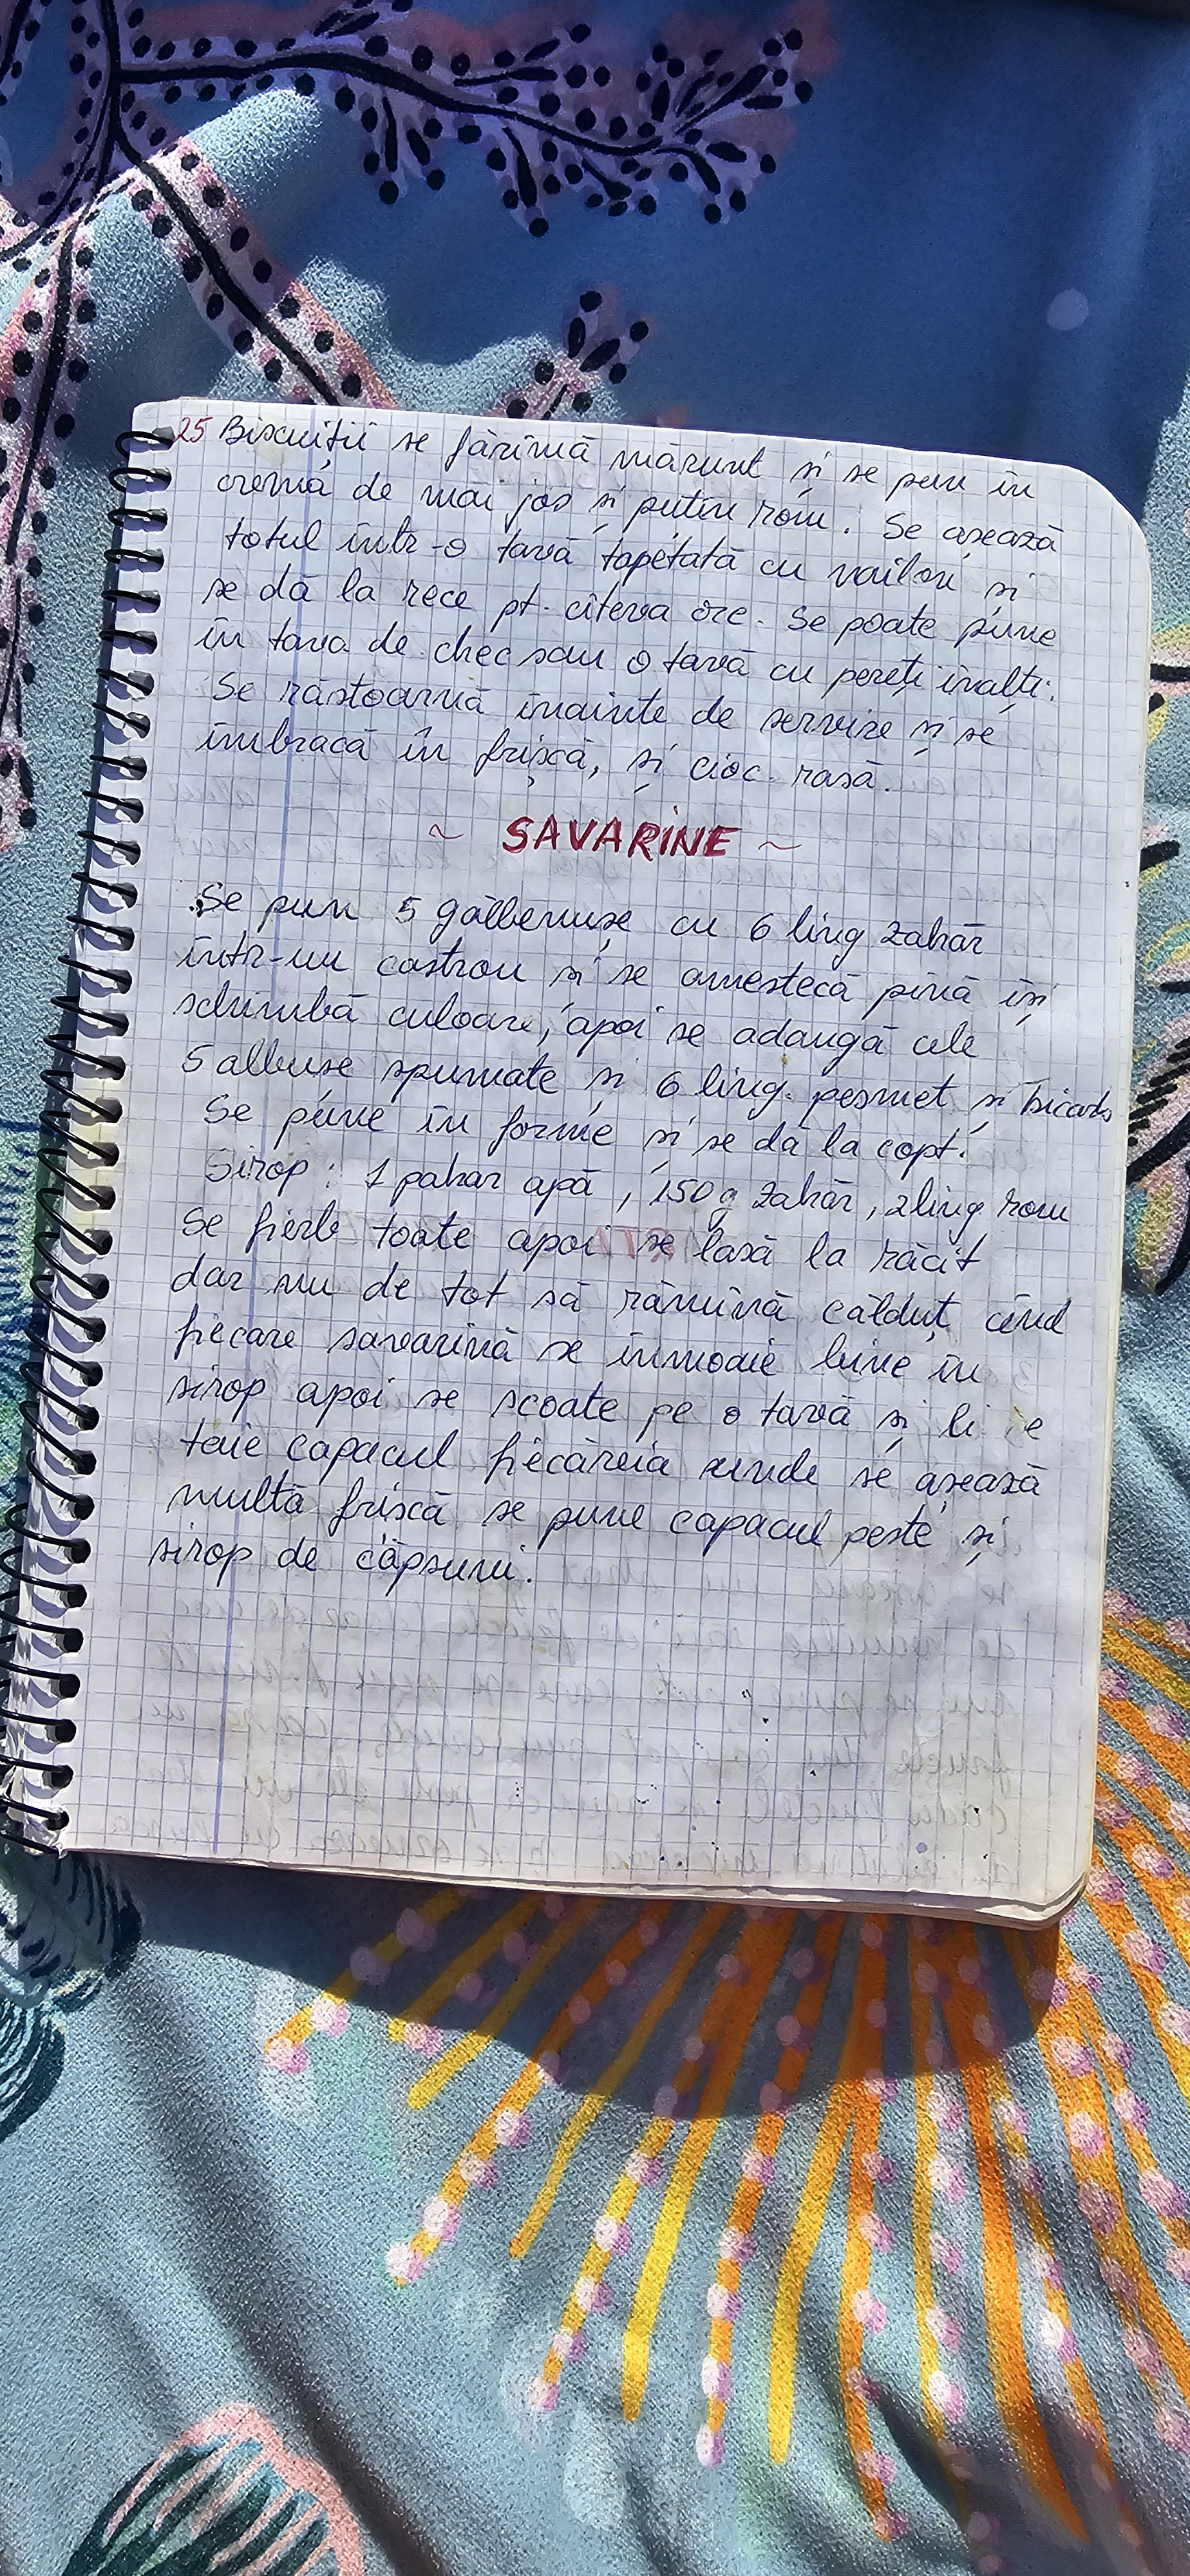 25 Biscuiții se fărîmă mărunt și se pun în
cremă de mai jos și puțin rom. Se așează
totul într-o tavă tapetată cu nailon și
se dă la rece pt. cîteva ore. Se poate pune
în tava de chec sau o tavă cu pereți înalți.
Se răstoarnă înainte de servire și se
îmbracă în frișcă, și cioc. rasă.
~ SAVARINE ~
Se pun 5 gălbenușe cu 6 ling zahăr
într-un castron și se amestecă pînă își
schimbă culoare, apoi se adaugă cele
5 albușe spumate și 6 ling. pesmet și bicarb
Se pune în forme și se dă la copt.
Sirop: 1 pahar apă, 150 g zahăr, 2 ling rom
Se fierb toate apoi se lasă la răcit
dar nu de tot să rămînă călduț cînd
fiecare savarină se înmoaie bine în
sirop apoi se scoate pe o tavă și li se
taie capacul fiecăreia unde se așează
multă frișcă se pune capacul peste și
sirop de căpsuni.